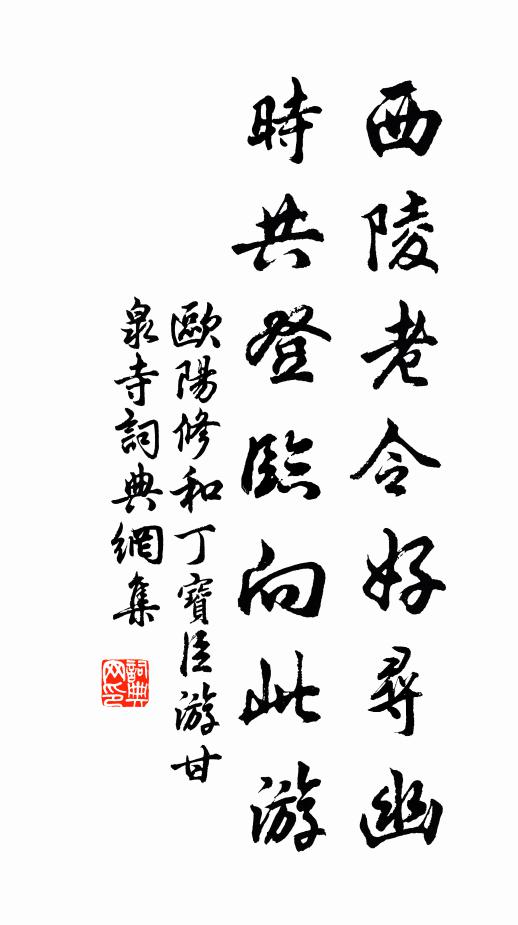 西陵老令好尋幽
時共登臨向此游
歐陽修和丁寶臣游甘
泉寺詞典網集
詞典
网印